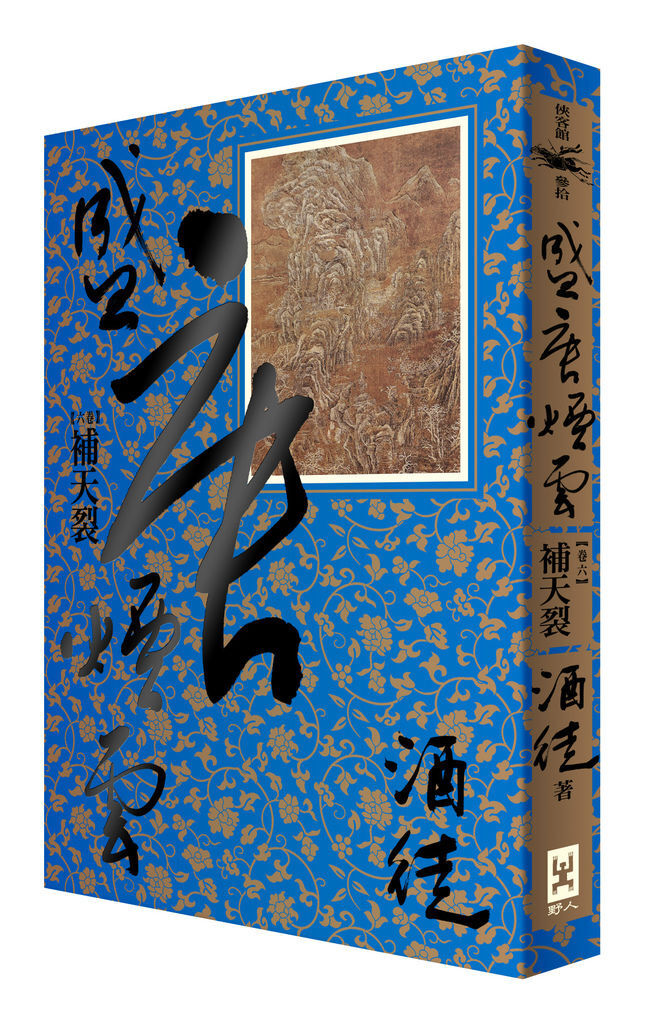 盛唐煙雲
【卷六】
補天裂
酒徒
俠客館
參拾
盛唐煙雲
【卷六】
補天裂
酒徒 著
野人